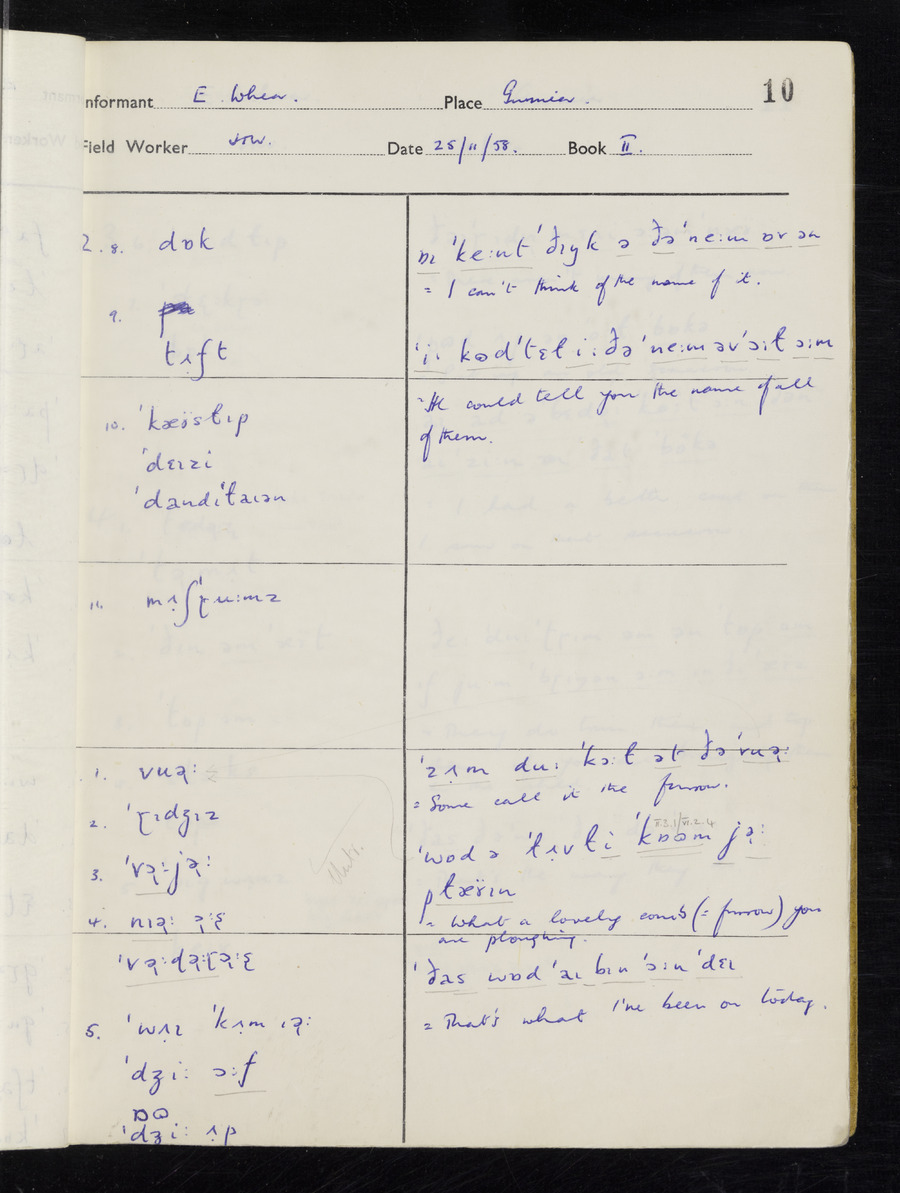 Informant E. Whear. Place Gunnier. 10
Field Worker Date 25/11/58. Book II.
2. 8. dɒk
9.
tɪft
10. ˈkæʊslɪp
ˈdeɪzi
ˈdandɪˈtaɪən
11. mʌʃɽuːmz
1. vuəː
2. ˈɽɪdʒɪz
3. ˈvəːjəː
4. nɪəː
5. ˈwʌz ˈkʌm ɪəː
ˈdʒiː ɔːf
ˈdʒiː ʌp
ɒɪ ˈkeːnt ˈðɪŋk ə ðə ˈneːm ɒv ən
= I can't think of the name of it.
ˈiː kədˈtɛl iː ðə ˈneːm əvˈɔːl əm
= He could tell you the name of all
of them.
ˈzʌm duː ˈkɔːl ət ðə ˈvuəː
= Some call it the furrow.
II.3.1/VI.2.4
ˈwɒd ə ˈlʌvli ˈkɒəm jəː
= What a lovely comb (= furrow) you
are ploughing.
ˈðas wɒd ˈaɪ bɪn ˈɔːn ˈdeɪ
= That's what I've been on today.